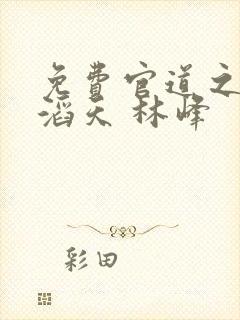 免费官道之
滔天 林峰
彩田